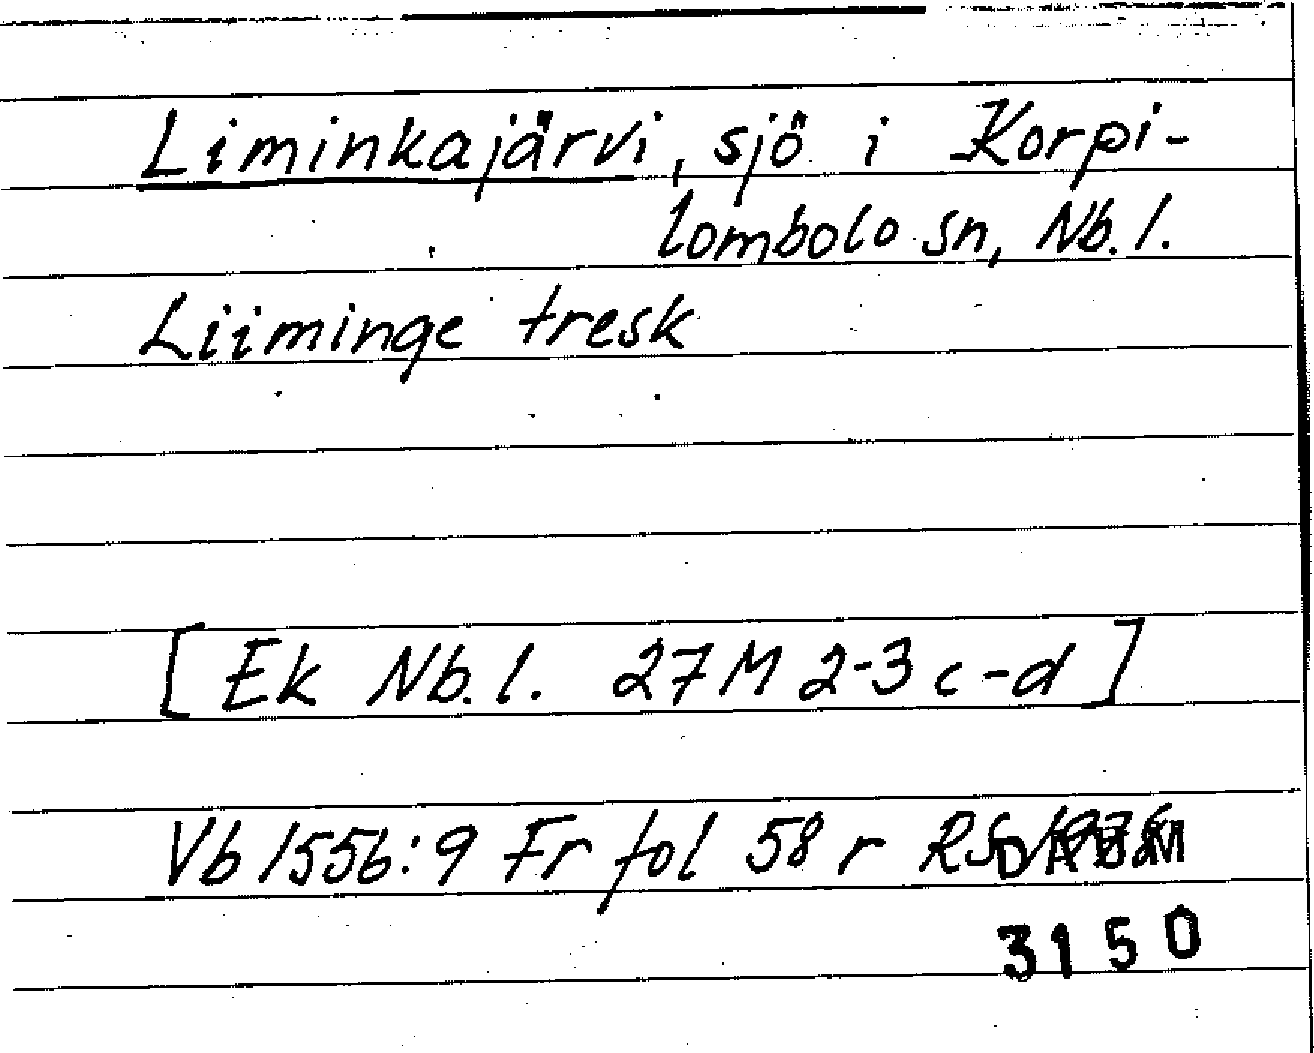 Liminkajärvi, sjö i Korpi-
lombolo sn, Nb. l.
Liiminge tresk
[Ek Nb. l. 27M 2-3 c-d]
Vb 1556:9 Fr fol 58 r RS
3150